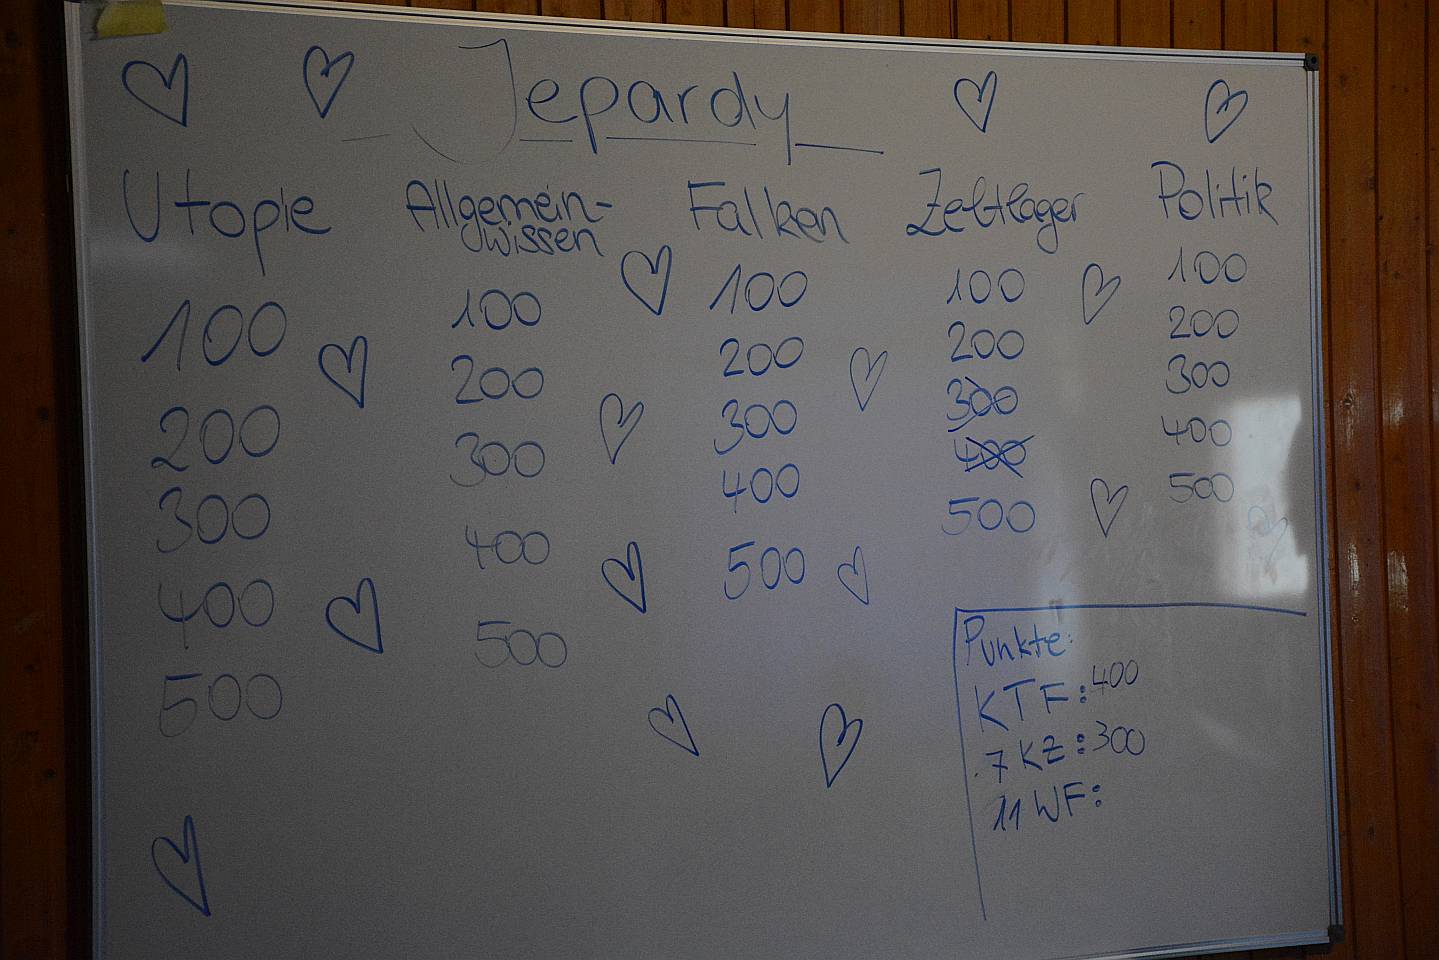 Jepardy
Utopie
100
200
300
400
500
Allgemein-
wissen
100
200
300
400
500
Falken
100
200
300
400
500
Zeltlager
100
200
300
400
500
Politik
100
200
300
400
500
Punkte:
KTF: 400
7KZ: 300
11WF: